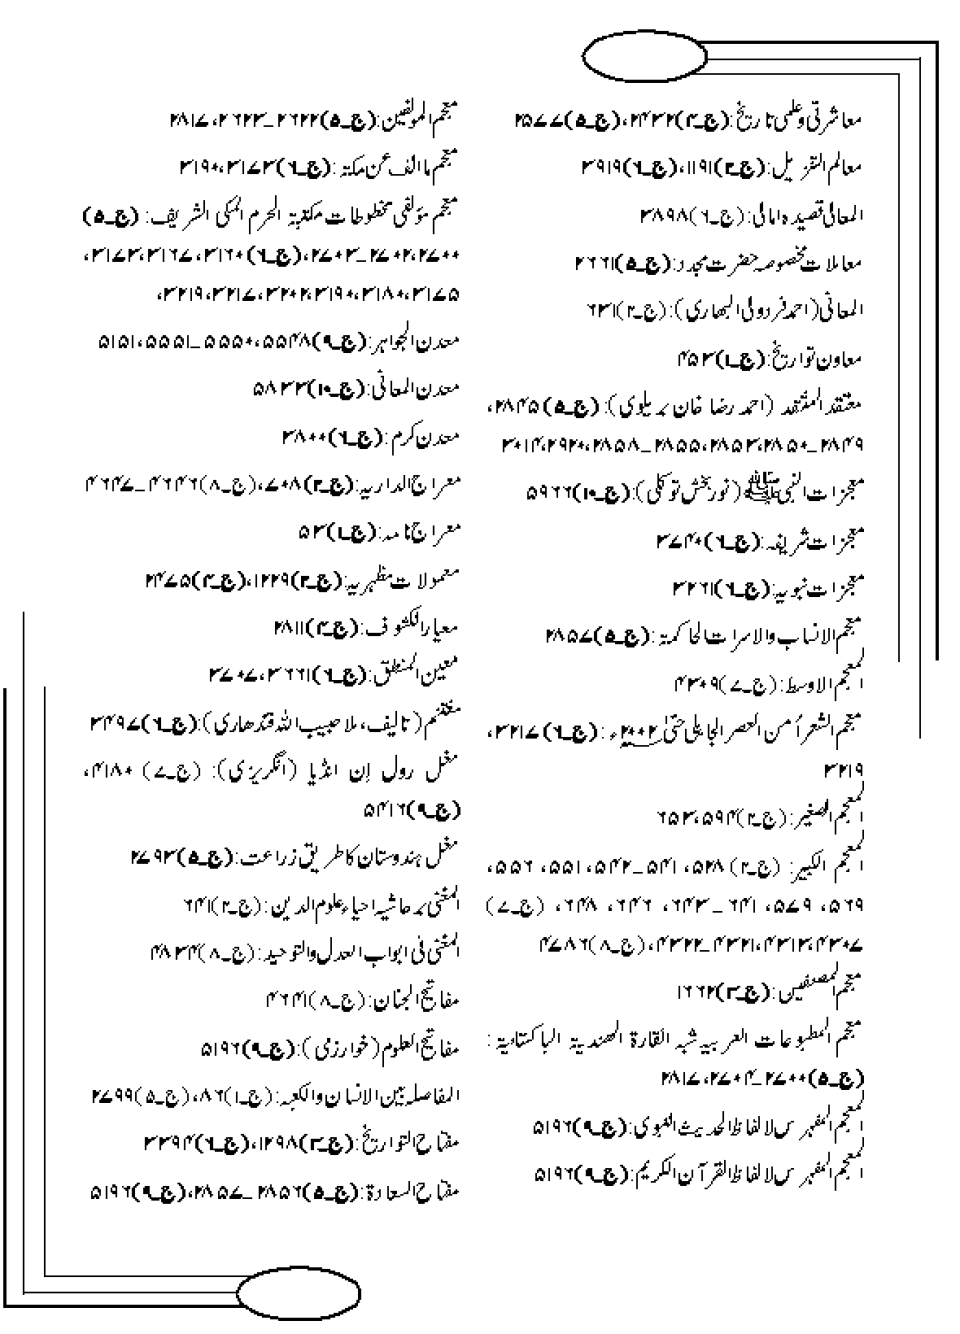 معاشرتی وعلمی تاریخ:(ج۔۴)۲۴۳۲،(ج۔۵)۲۵۷۷
معالم التنزیل:(ج۔۳)۱۱۹۱،(ج۔۶)۳۹۱۹
المعالی قصیدہ امالی:(ج۔۶)۳۸۹۸
معاملات مخصوصہ حضرت مجدد:(ج۔۵)۲۶۶۱
المعانی(احمد فردولی البہاری):(ج۔۲)۶۳۱
معاون تواریخ:(ج۔۱)۴۵۳
معتقد المنتقد (احمد رضا خان بریلوی):(ج۔۵)۲۸۴۵،
۲۸۴۹_۲۸۵۰،۲۸۵۳،۲۸۵۵_۲۸۵۸،۲۹۲۰،۳۰۱۴
معجزات النبیﷺ(نور بخش توکلی):(ج۔۱۰)۵۹۲۲
معجزات شریفہ:(ج۔۶)۳۷۴۰
معجزات نبویہ:(ج۔۶)۳۲۶۱
معجم الانساب والاسرات الحاکمۃ:(ج۔۵)۲۸۵۷
المعجم الاوسط:(ج۔۷)۴۳۰۹
معجم الشعرأ من العصر الجاہلی حتیٰ ۲۰۰۲ء:(ج۔۶)۳۲۱۷،
۳۲۱۹
المعجم الصغیر:(ج۔۲)۵۹۴،۶۵۳
المعجم الکبیر: (ج۔۲) ۵۲۸، ۵۴۱_۵۴۲، ۵۵۱، ۵۵۶،
۵۶۹، ۵۷۹، ۶۴۱ _۶۴۳، ۶۴۶، ۶۴۸، (ج۔۷)
۴۳۰۷،۴۳۱۳،۴۳۲۱_۴۳۲۲،(ج۔۸)۴۷۸۶
معجم المصنفین:(ج۔۳)۱۶۶۲
معجم المطبوعات العربیہ شبہ القارۃ الھندیۃ الباکستانیۃ:
(ج۔۵)۲۷۰۰_۲۷۰۴،۲۸۱۷
المعجم المفہرس لالفاظ الحدیث النبوی:(ج۔۹)۵۱۹۶
المعجم المفہرس لالفاظ القرآن الکریم:(ج۔۹)۵۱۹۶
معجم المولفین:(ج۔۵)۲۶۲۲_۲۶۲۳،۲۸۱۷
معجم ماالف عن مکۃ:(ج۔۶)۳۱۷۳،۳۱۹۰
معجم مؤلفی مخطوطات مکتبۃ الحرم المکی الشریف: (ج۔۵)
۲۷۰۰،۲۷۰۲_۲۷۰۳،(ج۔۶)۳۱۶۰،۳۱۶۷،۳۱۷۳،
۳۱۷۵،۳۱۸۰،۳۱۹۰،۳۲۰۲،۳۲۱۷،۳۲۱۹،
معدن الجواہر:(ج۔۹)۵۵۴۸،۵۵۵۰_۵۵۵۱،۵۱۵۱
معدن المعانی:(ج۔۱۰)۵۸۳۳
معدن کرم:(ج۔۶)۳۸۰۰
معراج الداریہ:(ج۔۲)۷۰۸،(ج۔۸)۴۶۴۶_۴۶۴۷
معراج نامہ:(ج۔۱)۵۳
معمولات مظہریہ:(ج۔۳)۱۲۲۹،(ج۔۴)۲۴۷۵
معیار الکشوف:(ج۔۴)۲۸۱۱
معین المنطق:(ج۔۶)۳۶۶۱،۳۷۰۷
مغتنم (تالیف، ملا حبیب اللہ قندھاری):(ج۔۶)۳۴۹۷
مغل رول اِن انڈیا (انگریزی): (ج۔۷) ۴۱۸۰،
(ج۔۹)۵۴۱۶
مغل ہندوستان کا طریق زراعت:(ج۔۵)۲۷۹۳
المغنی بر حاشیہ احیاء علوم الدین:(ج۔۲)۶۴۱
المغنی فی ابواب العدل والتوحید:(ج۔۸)۴۸۳۴
مفاتیح الجنان:(ج۔۸)۴۶۴۱
مفاتیح العلوم(خوارزمی):(ج۔۹)۵۱۹۶
المفاصلہ بین الانسان والکعبہ:(ج۔۱)۸۶،(ج۔۵)۲۷۹۹
مفتاح التواریخ:(ج۔۳)۱۲۹۸،(ج۔۶)۳۳۹۴
مفتاح السعادۃ:(ج۔۵)۲۸۵۶_۲۸۵۷،(ج۔۹)۵۱۹۶